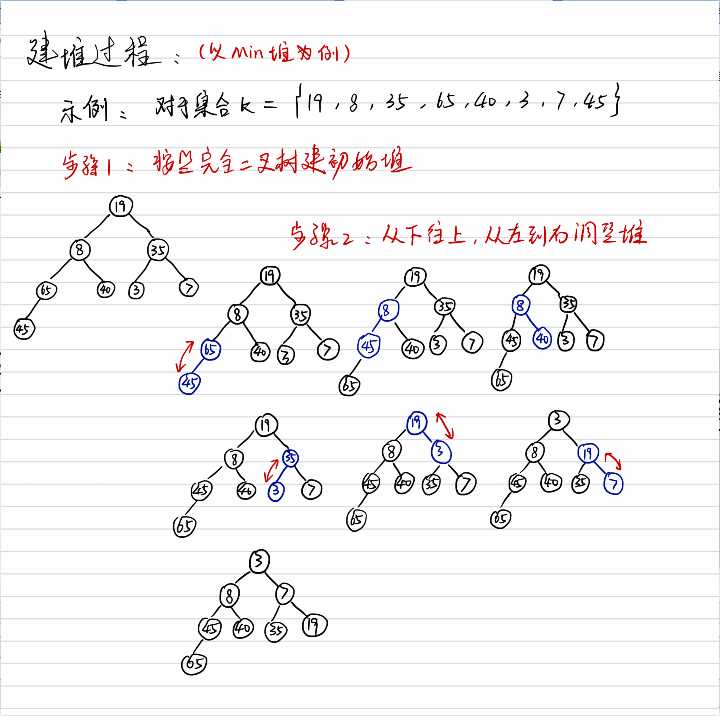 建堆过程：（以Min堆为例）
示例：对于集合K = {19, 8, 35, 65, 40, 3, 7, 45}
步骤1：按照完全二叉树建初始堆
19
8 35
65 40 3 7
45
步骤2：从下往上，从左到右调整堆
19 19 19
8 35 8 35 8 35
65 40 3 7 45 40 3 7 45 40 3 7
45 65 65
19 19 3
8 35 8 3 8 19
45 40 3 7 45 40 35 7 45 40 35 7
65 65 65
3
8 7
45 40 35 19
65